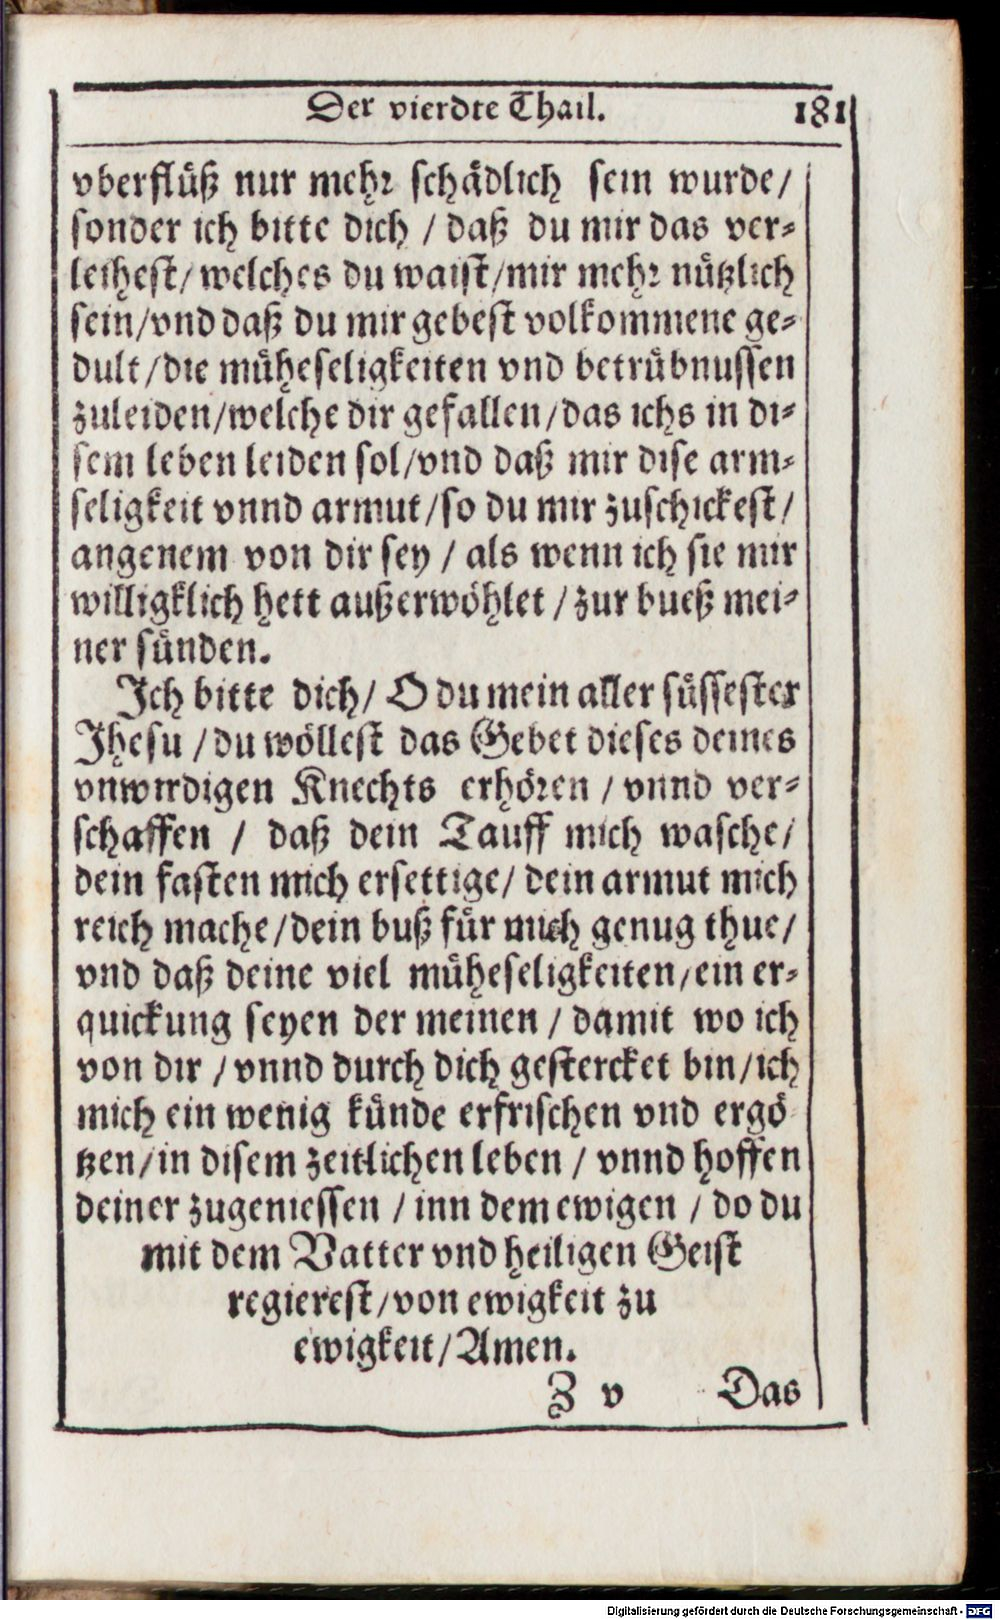 Der vierdte Thail. 181
vberflüß nur mehr schädlich sein wurde/
sonder ich bitte dich / daß du mir das ver-
leihest/ welches du waist/mir mehr nützlich
sein/vnd daß du mir gebest volkommene ge-
dult/die müheseligkeiten vnd betrübnussen
zuleiden/welche dir gefallen/das ichs in di-
sem leben leiden sol/vnd daß mir dise arm-
seligkeit vnnd armut/so du mir zuschickest/
angenem von dir sey / als wenn ich sie mir
willigklich hett außerwöhlet / zur bueß mei-
ner sünden.
Ich bitte dich/ O du mein aller süssester
Jhesu / du wöllest das Gebet dieses deines
vnwirdigen Knechts erhören / vnnd ver-
schaffen / daß dein Tauff mich wasche/
dein fasten mich ersettige/ dein armut mich
reich mache/dein buß für mich genug thue/
vnd daß deine viel müheseligkeiten/ein er-
quickung seyen der meinen / damit wo ich
von dir / vnnd durch dich gestercket bin/ich
mich ein wenig künde erfrischen vnd ergö-
tzen/in disem zeitlichen leben / vnnd hoffen
deiner zugeniessen / inn dem ewigen / do du
mit dem Vatter vnd heiligen Geist
regierest/von ewigkeit zu
ewigkeit/Amen.
Z v Das
Digitalisierung gefördert durch die Deutsche Forschungsgemeinschaft - DFG